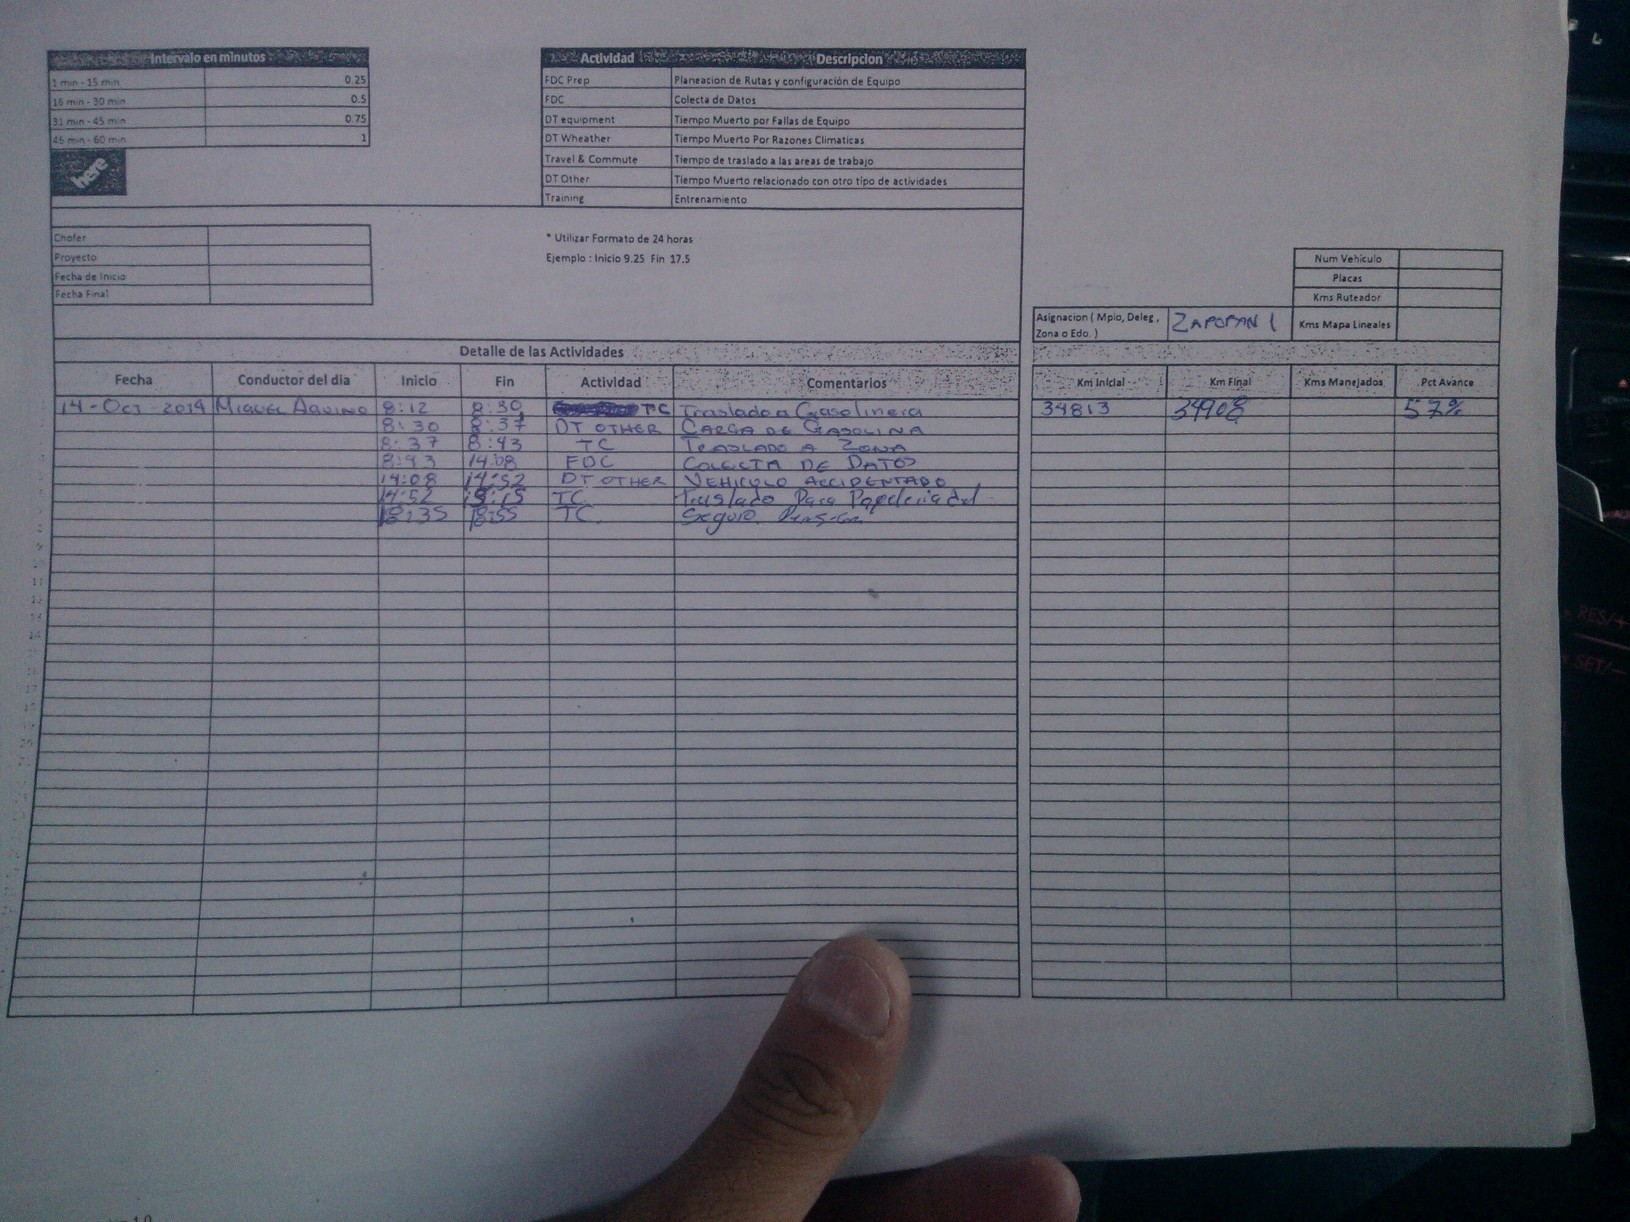 Intervalo en minutos
1 min - 15 min 0.25
16 min - 30 min 0.5
31 min - 45 min 0.75
46 min - 60 min 1
here
Actividad Descripcion
FDC Prep Planeacion de Rutas y configuración de Equipo
FDC Colecta de Datos
DT equipment Tiempo Muerto por Fallas de Equipo
DT Wheather Tiempo Muerto Por Razones Climaticas
Travel & Commute Tiempo de traslado a las areas de trabajo
DT Other Tiempo Muerto relacionado con otro tipo de actividades
Training Entrenamiento
Chofer
Proyecto
Fecha de Inicio
Fecha Final
* Utilizar Formato de 24 horas
Ejemplo : Inicio 9.25 Fin 17.5
Num Vehiculo
Placas
Kms Ruteador
Asignacion ( Mpio, Deleg, Zona o Edo. ) ZAPOPAN 1 Kms Mapa Lineales
Detalle de las Actividades
Fecha Conductor del dia Inicio Fin Actividad Comentarios Km Inicial Km Final Kms Manejados Pct Avance
14-Oct-2014 MIGUEL AQUINO 8:12 8:30 TC Traslado a Gasolinera 34813 34908 57%
8:30 8:37 DT OTHER CARGA DE GASOLINA
8:37 8:43 TC TRASLADO A ZONA
8:43 14:08 FDC COLECTA DE DATOS
14:08 14:52 DT OTHER VEHICULO ACCIDENTADO
14:52 TC Traslado Para Papeleria del
18:35 18:55 TC Seguro.
RES/+
SET/-